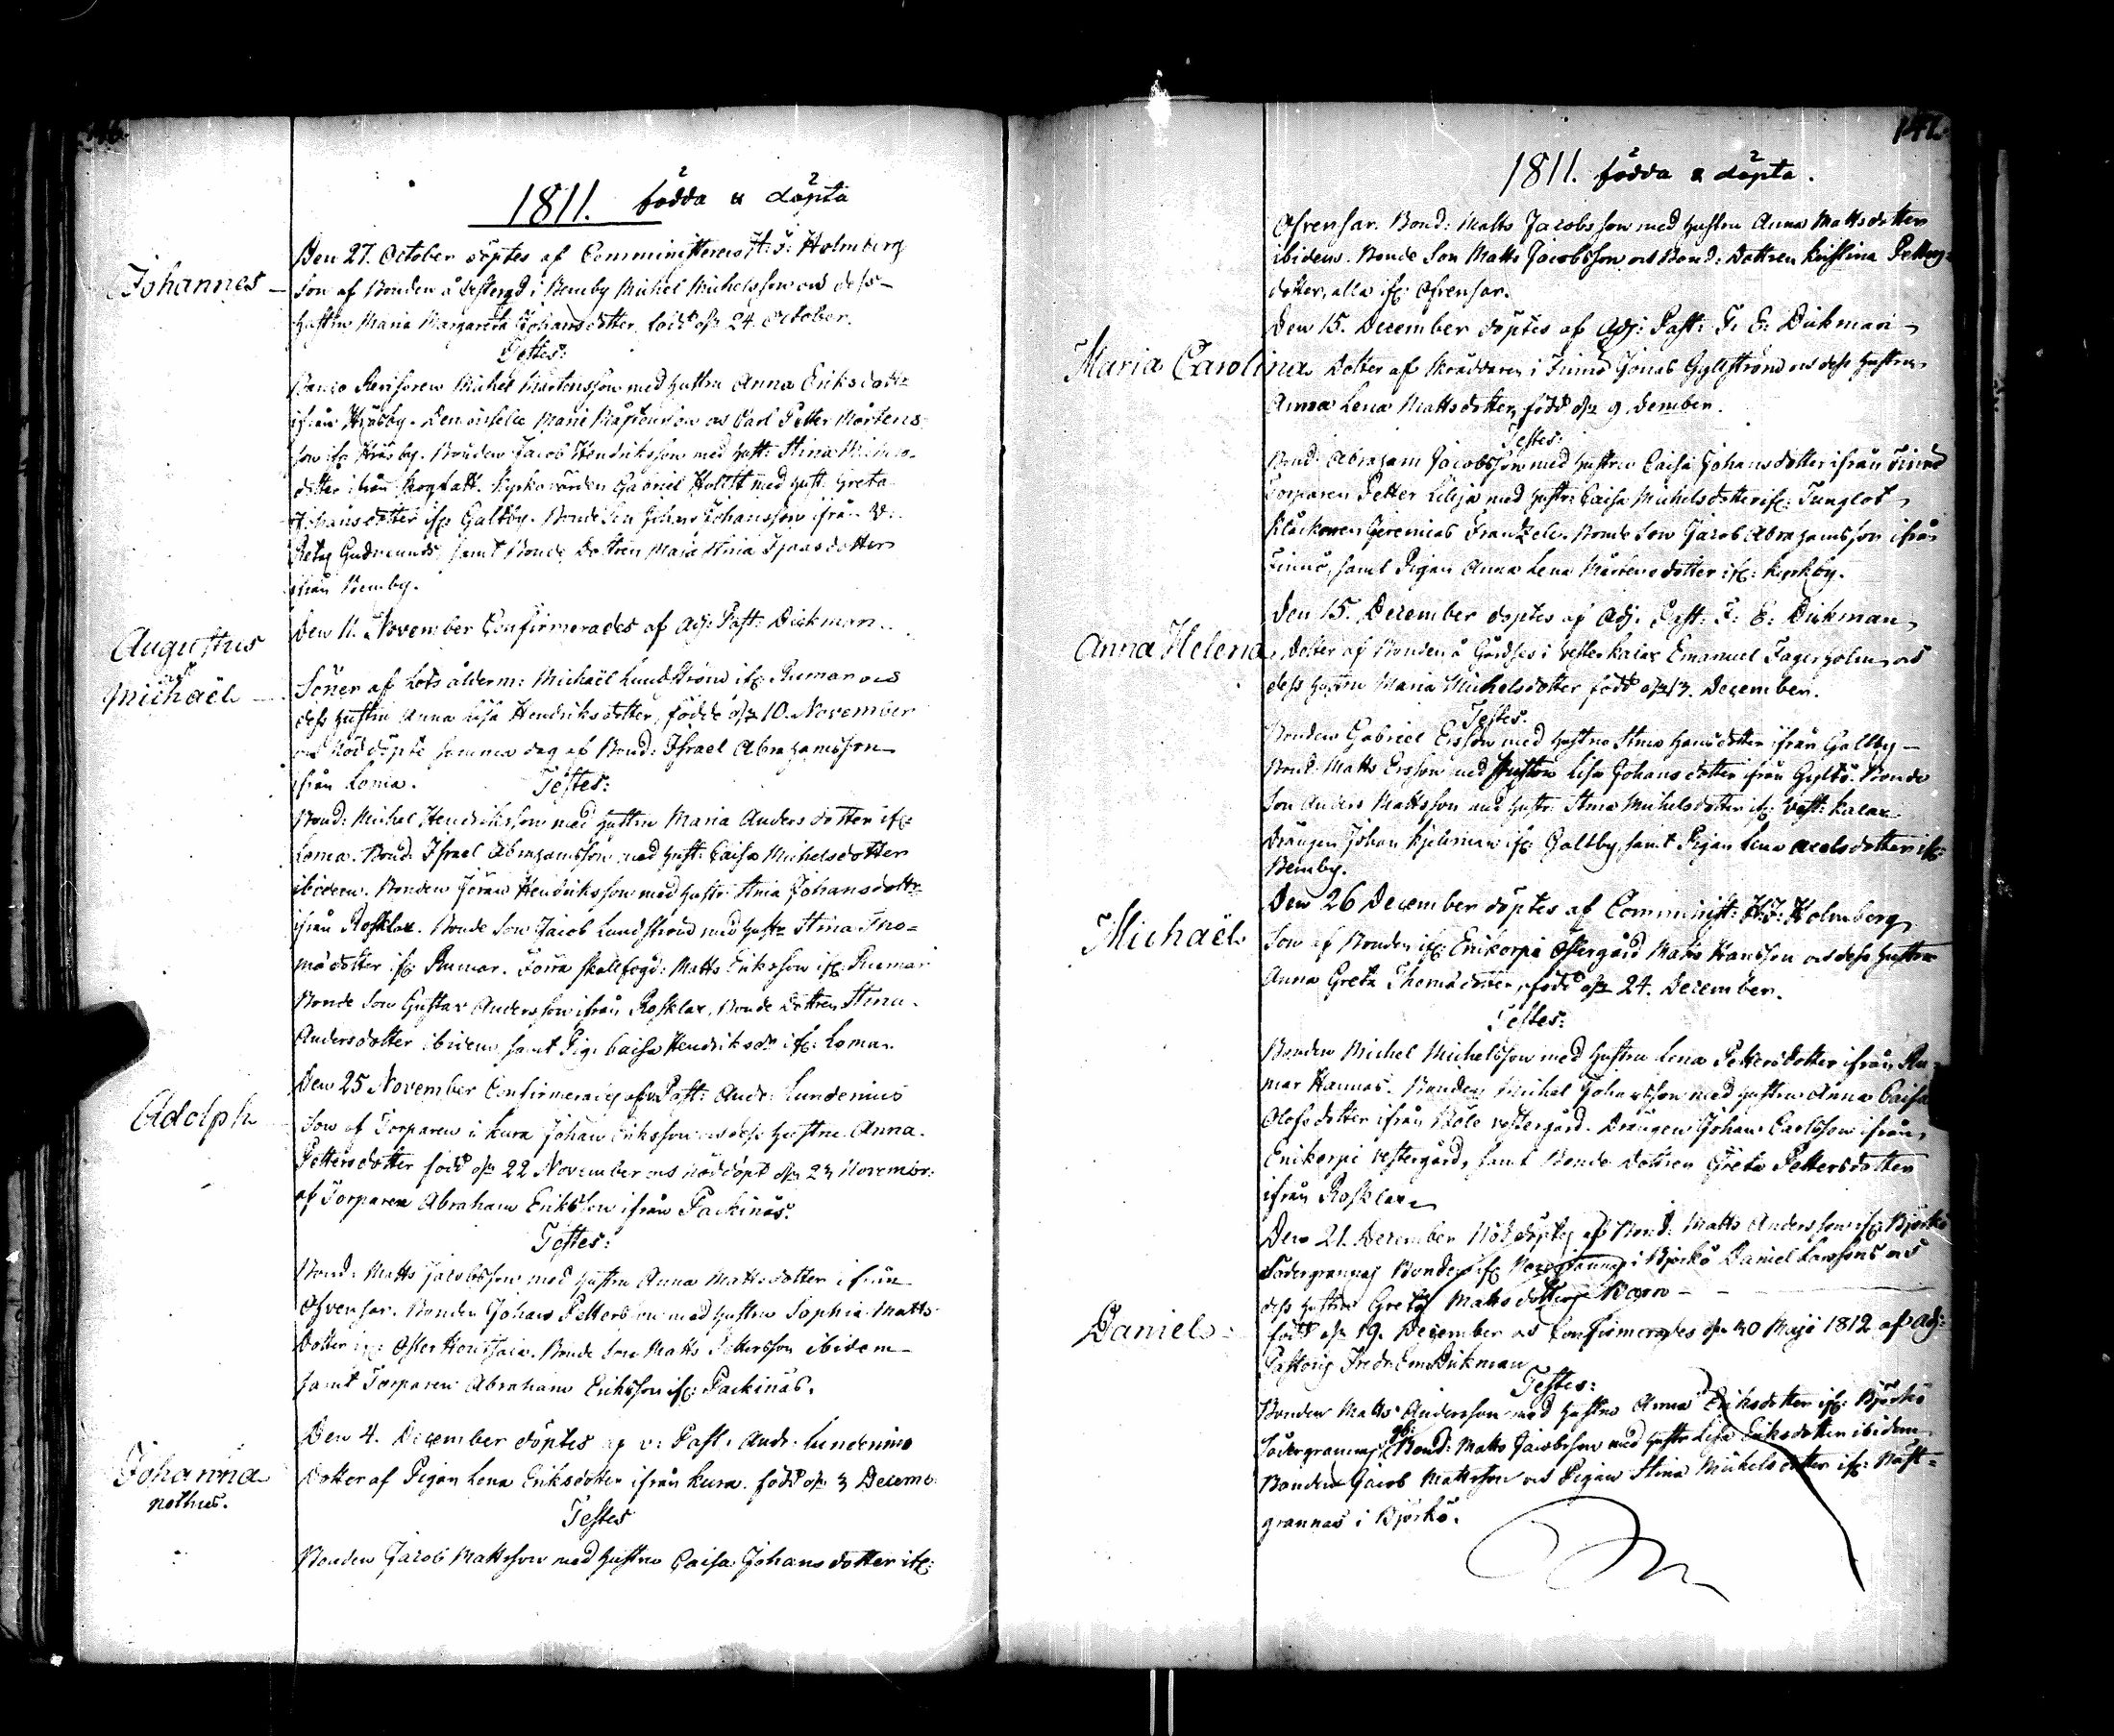 1811. födda & döpta
Johannes
Den 27. October döptes af Comminist H: J: Holmberg
Son af Bonden å Vestergd i Bemby Michel Michelsson och dess
hustru Maria Margareta Johansdotter, född 24. October.
Testes:
Michel Mårtensson med hustru Anna Eriksdotter
ifrån Kräsby. Carl Petter Mårtens-
son ifr: Kräsby. Bonden Jacob Hendriksson med hust: Stina Michels-
dotter ifrån Kyrkovärden Gabriel med hust. Greta
Johansdotter ifr: Galtby. Bonde Son Johan Johansson ifrån
samt Bonde Dottren Maja Stina
ifrån Bemby.
Augustus
och
Michaël
Den 11. November Confirmerades af Adj: Past: Dickman
Söner af Lots ålderm: Michaël Lundström ifr: Rumar och
dess hustru Anna Lisa Hendriksdotter, födde 10. November
och Nöddöpte samma dag af Bond: Israel Abrahamsson
ifrån Loma. Testes:
Bond: Michel Hendriksson med hustru Maria Andersdotter ifr:
Loma. Bond: Israel Abrahamsson med hust: Caisa Michelsdotter
ibidem. Bonden Jöran Hendriksson med hustr: Stina Johansdotter
ifrån Rosklax. Bonde Son Jacob Lundström med hustr Stina Tho-
mädotter ifr: Rumar. Matts Eriksson ifr: Rumar
Bonde Son Gustav Andersson ifrån Rosklax, Bonde Dottren Stina
Andersdotter ibidem, samt Pig: Caisa Hendriksdr ifr: Loma.
Adolph
Den 25 November Confirmerades af v: Past: Andr: Lundenius
Son af Torparen i Kura Johan Eriksson och dess hustru Anna
Pettersdotter född 22 November och nöddöpt 23 November
af Torparen Abraham Eriksson ifrån Packinäs.
Testes:
Bond: Matts Jacobsson med hustru Anna Mattsdotter ifrån
Ofvensar. Bonden Johan Pettersson med hustru Sophia Matts
dotter ifr: Öster Bonde Son Matts Pettersson ibidem
samt Torparen Abraham Eriksson ifr: Packinäs.
Johanna
nothus.
Den 4. December döptes af v: Past: Andr: Lundenius
Dotter af Pigan Lena Eriksdotter ifrån Kura. född 3 Decemb:
Testes
Bonden Jacob Mattsson med hustru Caisa Johansdotter ifr:
142.
1811. födda & döpta.
Ofvensar. Bond: Matts Jacobsson med hustru Anna Mattsdotter
ibidem. Bonde Son Matts Jacobsson och Bond: Dottren Kristina Petters-
dotter, alla ifr: Ofvensar.
Maria Carolina
Den 15. December döptes af Adj: Past: F: E: Dickman
Dotter af Skräddaren i Finnö Jonas Gyllström och dess hustru
Anna Lena Mattsdotter, född 9. December.
Testes:
Bond: Abraham Jacobsson med hustru Caisa Johansdotter ifrån Finnö
Torparen Petter Lilja med hustr: Caisa Michelsdotter ifr:
Klockaren Jeremias Bonde Son Jacob Abrahamsson ifrån
Finnö, samt Pigan Anna Lena Mårtensdotter ifr: Kyrkby.
Anna Helena
Den 15. December döptes af Adj. Past: F: E: Dickman
Dotter af Bonden å i Vesterkalax Emanuel Fagerholm och
dess hustru Maria Michelsdotter född 13. December.
Testes.
Bonden Gabriel Ersson med hustru Stina Hansdotter ifrån Galtby
Bond: Matts Ersson med Hustru Lisa Johansdotter ifrån Gyltö. Bonde
Son Anders Mattsson med hustr: Stina Michelsdotter ifr: Vest: Kalax
Drängen Johan ifr: Galtby, samt Pigan Lena Axelsdotter ifr:
Bemby.
Michaël
Den 26 December döptes af Comminist: H: J: Holmberg
Son af Bonden ifr: Enikorpi Östergård Matts Hansson och dess hustru
Anna Greta Thomädotter, född 24. December.
Testes:
Bonden Michel Michelsson med hustru Lena Pettersdotter ifrån Ru-
mar Hannas. Bonden Michel Johansson med hustru Anna Caisa
Olofsdotter ifrån vestergård. Drängen Johan Carlsson ifrån
Enikorpi vestergård, samt Bonde dottren Greta Pettersdotter
ifrån Rosklax
Daniel
Den 21. December Nöddöptes af Bond: Matts Andersson ifr: Björkö
Södergrannas Bonden ifr: i Björkö Daniel Larssons och
dess hustru Greta Mattsdotters Barn
född 19. December och Confirmerades 30 Maji 1812 af Adj:
Pastoris Fredr: Em: Dickman
Testes:
Bonden Matts Andersson med hustru Anna Eriksdotter ifr: Björkö
Södergrannas, Bond: Matts Jacobsson med hustr: Lisa Eriksdotter ibidem
Bonden Jacob Mattsson och Pigan Stina Michelsdotter ifr: Näst-
grannas i Björkö.